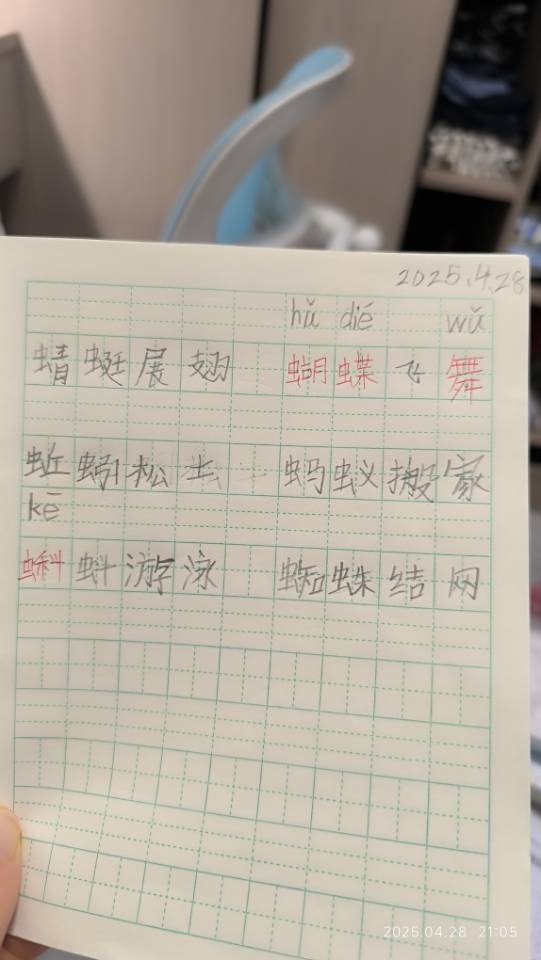 2025.4.28
hǔ dié wǔ
蜻蜓展翅 蝴蝶飞舞
蚯蚓松土 蚂蚁搬家
kē
蝌蚪游泳 蜘蛛结网
2025.04.28 21:05